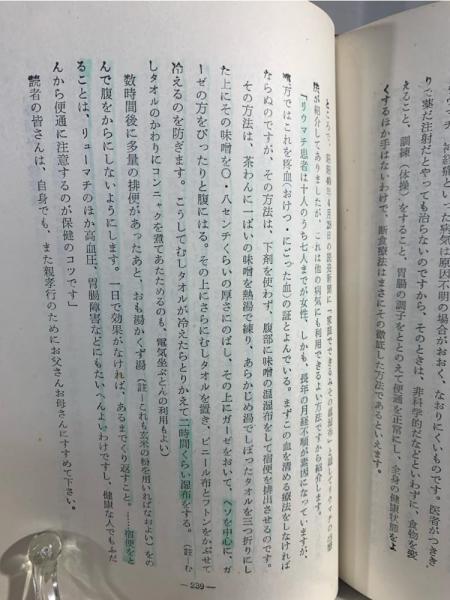 病気は原因不明の場合がおおく、なおりにくいものです。医者がつきき
りで薬だ注射だとやっても治らないのですから、そのときは、非科学的だなどといわずに、食物を変
えること、訓練（体操）をすること、胃腸の調子をととのえて便通を正常にし、全身の健康状態をよ
くするほか手はないわけで、断食療法はまさにその徹底した方法であるといえます。
ところで、
が紹介してありましたが、これは他の病気にも利用できるよい方法ですから紹介します。
「リウマチ患者は十人のうち七人までが女性、しかも、長年の月経不順が素因になっていますが、
漢方ではこれを瘀血（おけつ・にごった血）の証とよんでいる。まずこの血を清める療法をしなければ
ならぬのですが、その方法は、下剤を使わず、腹部に味噌の温湿布をして宿便を排出させるのです。
その方法は、茶わんに一ぱいの味噌を熱湯で練り、あらかじめ湯でしぼったタオルを三つ折りにし
た上にその味噌を〇・八センチくらいの厚さにのばし、その上にガーゼをおいて、ヘソを中心に、ガ
ーゼの方をぴったりと腹にはる。その上にさらにむしタオルを置き、ビニール布とフトンをかぶせて
冷えるのを防ぎます。こうしてむしタオルが冷えたらとりかえて二時間くらい湿布をする。（註―む
しタオルのかわりにコンニャクを煮てあたためるのも、電気坐ぶとんの利用もよい）
数時間後に多量の排便があったあと、おも湯かくず湯（註―これも玄米の粉を用いればなおよい）をの
んで腹をからにしないようにします。一日で効果がなければ、あるまでくり返すこと。……宿便をと
ることは、リューマチのほか高血圧、胃腸障害などにもたいへんよいわけですし、健康な人でもふだ
んから便通に注意するのが保健のコツです」
読者の皆さんは、自身でも、また親孝行のためにお父さんお母さんにすすめて下さい。
―239―